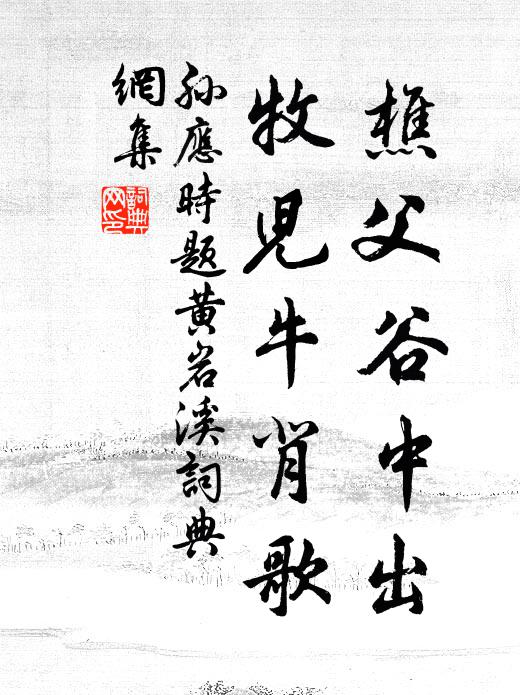 樵父谷中出
牧兒牛背歌
孫應時題黄岩溪詞典
網集
詞典
网印